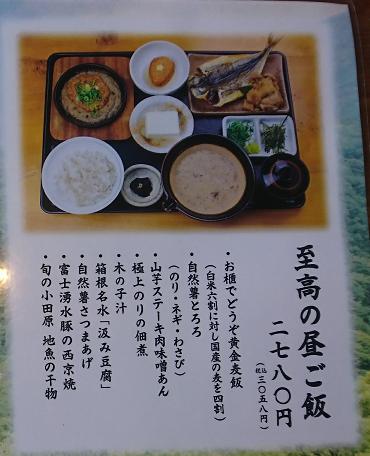 至高の昼ご飯
二七八〇円
(税込三〇五八円)
・お櫃でどうぞ黄金麦飯
(白米六割に対し国産の麦を四割)
・自然薯とろろ
(のり・ネギ・わさび)
・山芋ステーキ肉味噌あん
・極上のりの佃煮
・木の子汁
・箱根名水「汲み豆腐」
・自然薯さつまあげ
・富士湧水豚の西京焼
・旬の小田原 地魚の干物